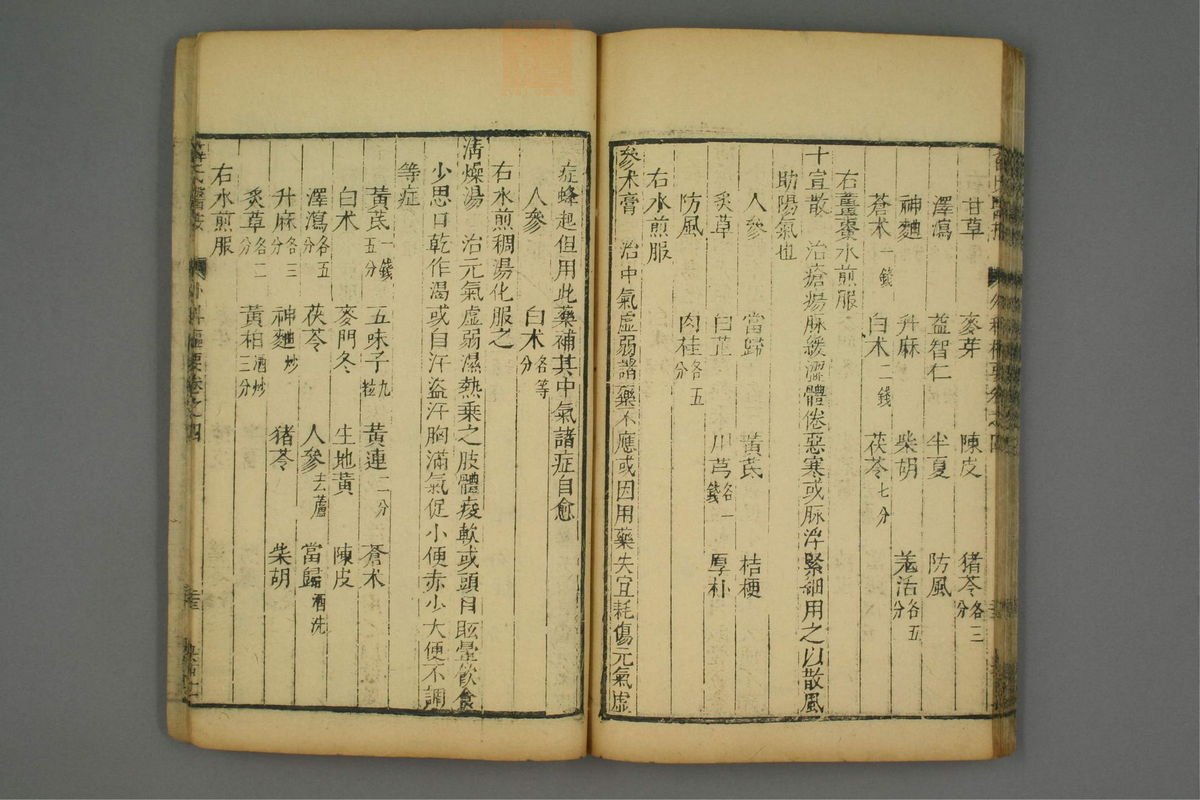 甘草 麥芽 陳皮 猪苓各三分
澤瀉 益智仁 半夏 防風
神麯 升麻 柴胡 羗活各五分
蒼术一錢 白术二錢 茯苓七分
右薑棗水煎服
十宣散 治瘡瘍脉緩澀體倦惡寒或脉浮緊細用之以散風
助陽氣也
人參 當歸 黃芪 桔梗
炙草 白芷 川芎各一錢 厚朴
防風 肉桂各五分
右水煎服
參术膏 治中氣虛弱諸藥不應或因用藥失宜耗傷元氣虛
症蜂起但用此藥補其中氣諸症自愈
人參 白术各等分
右水煎稠湯化服之
清燥湯 治元氣虛弱濕熱乘之肢體痠軟或頭目眩暈飲食
少思口乾作渴或自汗盜汗胸滿氣促小便赤少大便不調
等症
黃芪一錢五分 五味子九粒 黃連二分 蒼术
白术 麥門冬 生地黃 陳皮
澤瀉各五分 茯苓 人參去蘆 當歸酒洗
升麻各三分 神麯炒 猪苓 柴胡
炙草各二分 黃柏酒炒三分
右水煎服
外科樞要卷之四